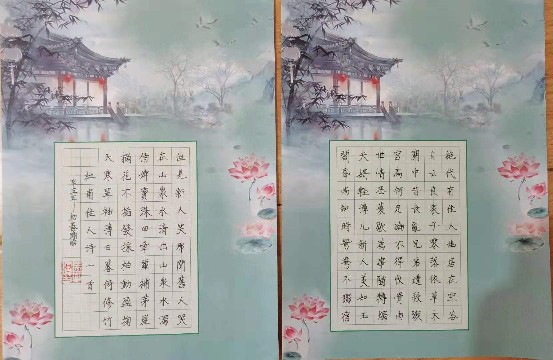 絶代有佳人幽居在空谷
自云良家子零落依草木
關中昔喪亂兄弟遭殺戮
官高何足論不得收骨肉
世情惡衰歇萬事隨轉燭
夫婿輕薄兒新人美如玉
合昏尚知時鴛鴦不獨宿
但見新人笑那聞舊人哭
在山泉水清出山泉水濁
侍婢賣珠回牽蘿補茅屋
摘花不插髮采柏動盈掬
天寒翠袖薄日暮倚修竹
杜甫佳人詩一首